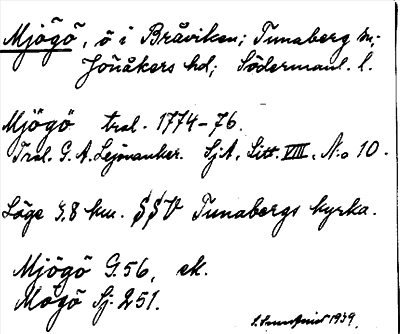 Mjögö, ö i Bråviken; Tunaberg sn;
Jönåkers hd; Södermanl. l.
Mjögö tral. 1774-76.
Tral. G. A. Lejonanker. SjA, Litt. VIII, No 10.
Läge 5,8 km. SSV Tunabergs kyrka.
Mjögö G.56, ek.
Mögö Sj. 251.
1939.